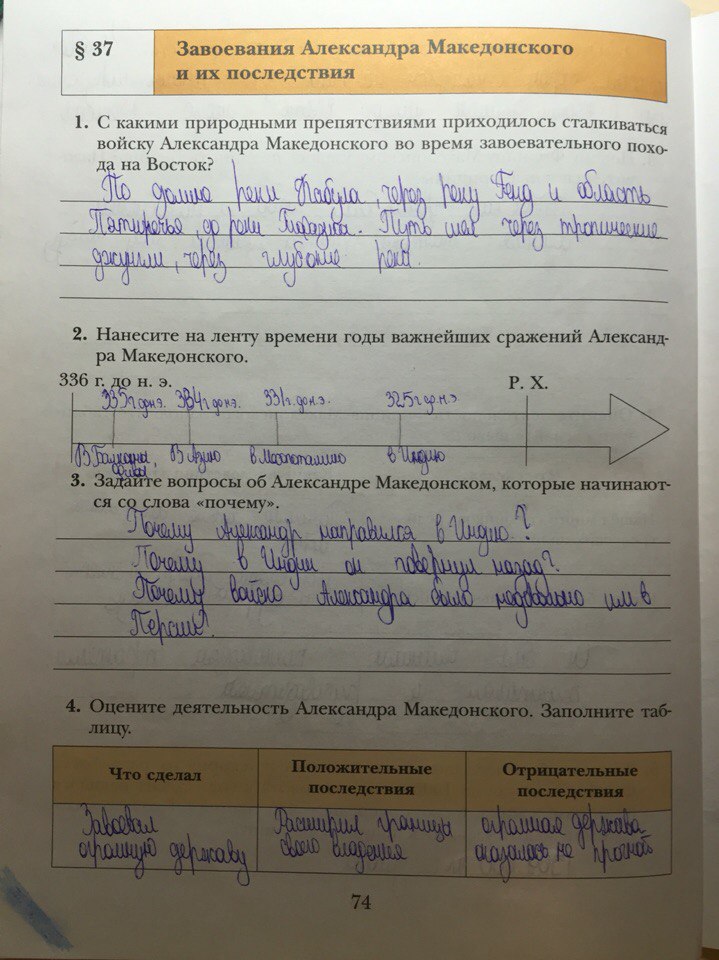 § 37
Завоевания Александра Македонского
и их последствия
1. С какими природными препятствиями приходилось сталкиваться
войску Александра Македонского во время завоевательного похо-
да на Восток?
По долине реки Кабула, через реку Генд и область
Пятиречья, до реки Путь шел через тропические
джунгли, через глубокие реки.
2. Нанесите на ленту времени годы важнейших сражений Александ-
ра Македонского.
336 г. до н. э.
Р. Х.
335 г до н э. 334 г до н э. 331 г. до н. э. 325 г. до н. э
В Балканы, В Азию в Месопотамию в Индию
3. Задайте вопросы об Александре Македонском, которые начинают-
ся со слова «почему».
Почему Александр направился в Индию?
Почему в Индии он повернул назад?
Почему войско Александра было недовольно им в
Персии?
4. Оцените деятельность Александра Македонского. Заполните таб-
лицу.
Что сделал
Положительные
последствия
Отрицательные
последствия
Завоевал
огромную державу
Расширил границы
своего владения
огромная держава
оказалась не прочной
74